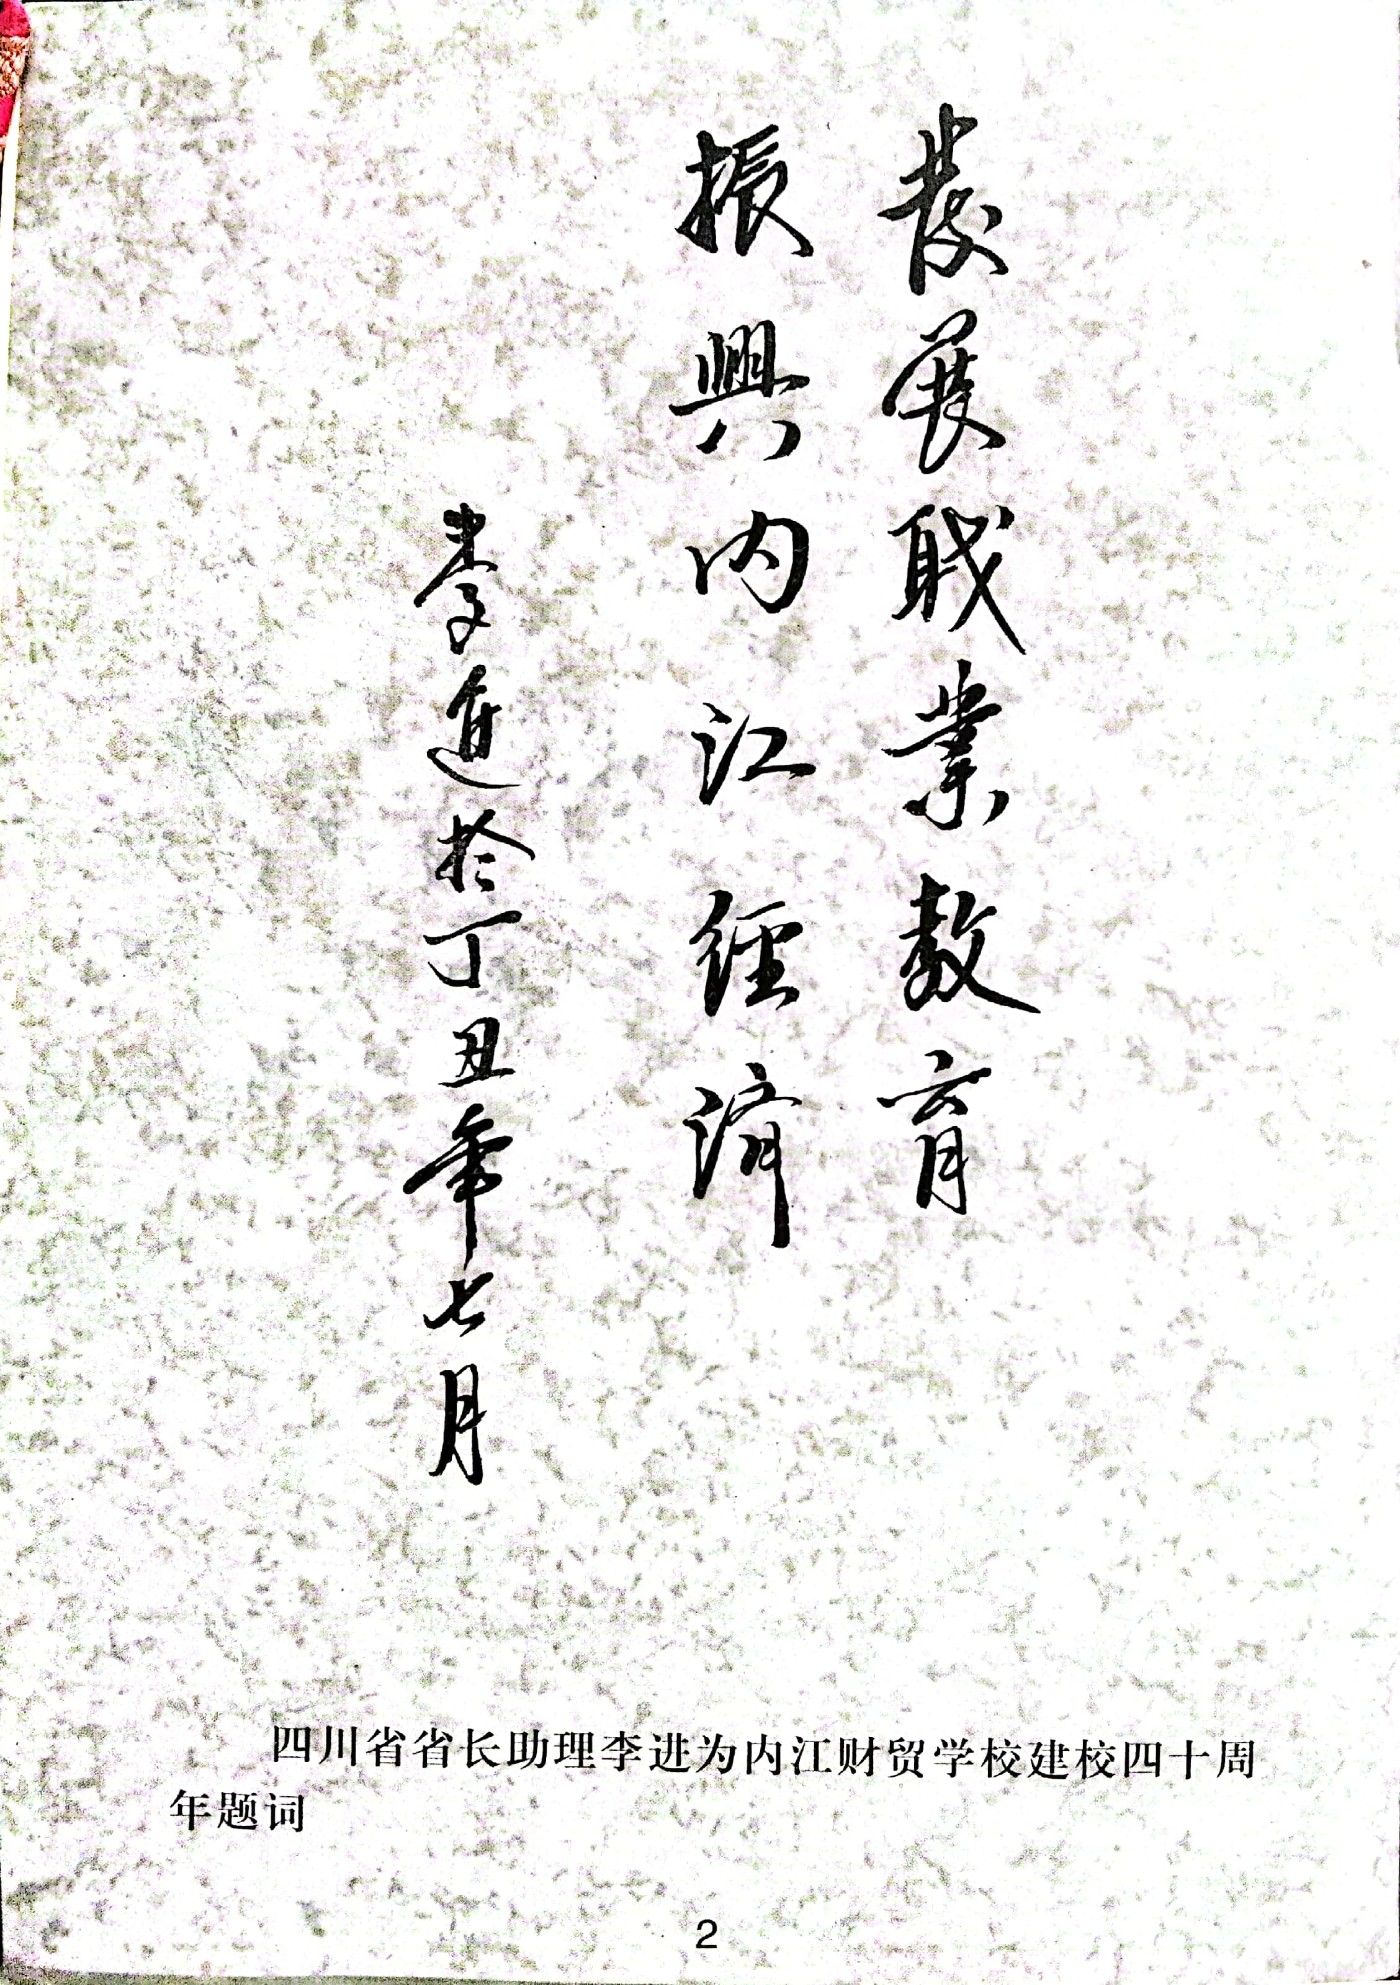 發展职業教育
振興内江經済
李進於丁丑年七月
四川省省长助理李进为内江财贸学校建校四十周
年题词
2